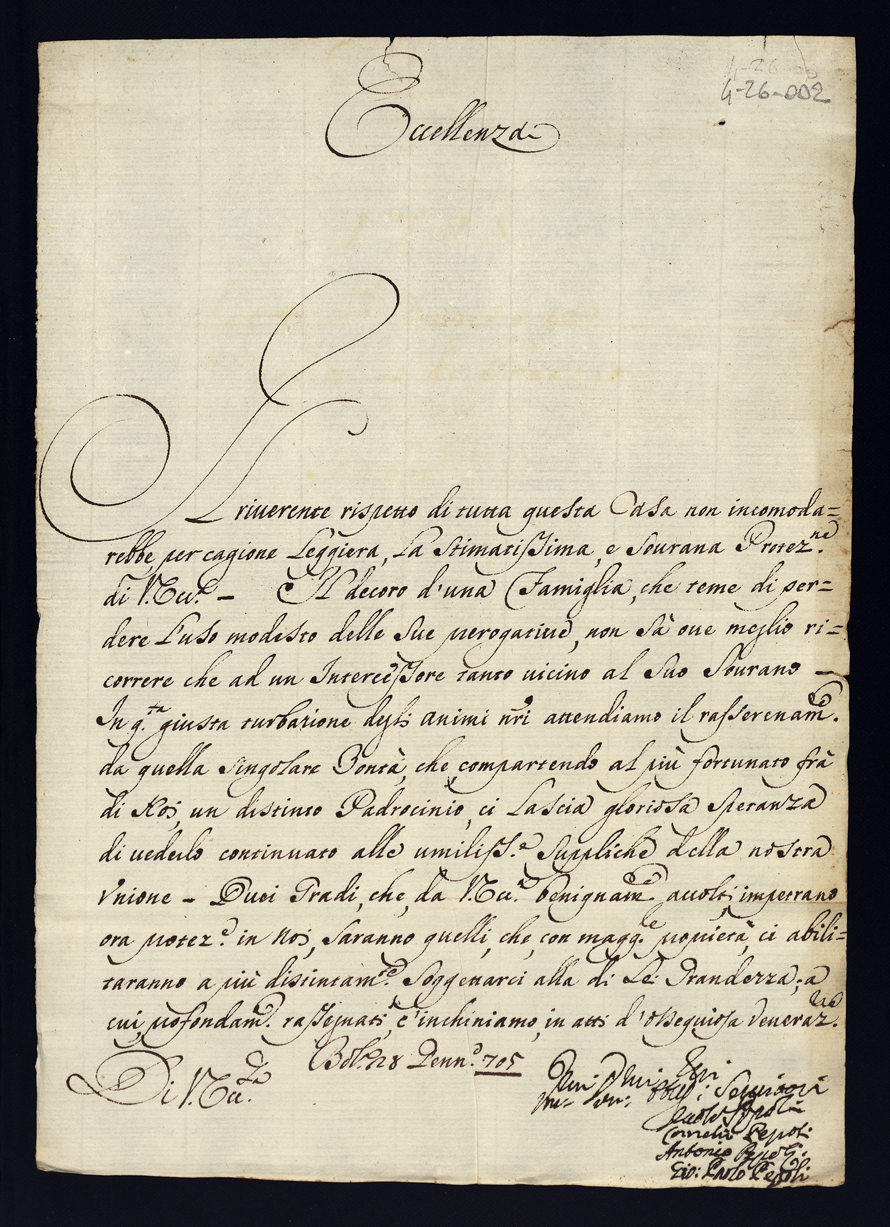 4-26-002
Eccellenza
Il riuerente rispetto di tutta questa Casa non incomoda=
rebbe per cagione Leggiera, La Stimatissima, e Sourana Protez.ne
di V. Ecc.a – Il decoro d'una Famiglia, che teme di per=
dere L'uso modesto delle Sue prerogatiue, non Sà oue meglio ri=
correre che ad un Intercessore tanto uicino al Suo Sourano –
In q.ta giusta turbazione degli animi nri attendiamo il rasserenam.to
da quella Singolare Bontà, che, compartendo al più fortunato frà
di Noi, un distinto Padrocinio, ci Lascia gloriosa Speranza
di uederlo continuato alle umiliss.e Suppliche della nostra
Vnione – Quei Gradi, che, da V. Ecc.a benignam.te accolti, impetrano
ora protez.e in Noi, Saranno quelli, che, con magg.e proprietà, ci abili=
taranno a più distintam.te Soggettarci alla di Lei Grandezza, a
cui, profondam.te rassegnati, c'inchiniamo, in atti d'ossequiosa Veneraz.ne
Bol.a 28 Genn.o 705
Di V. Ecc.za
Seruitori
Pepoli
Cornelio Pepoli
Antonio Pepoli
Gio: Paolo Pepoli